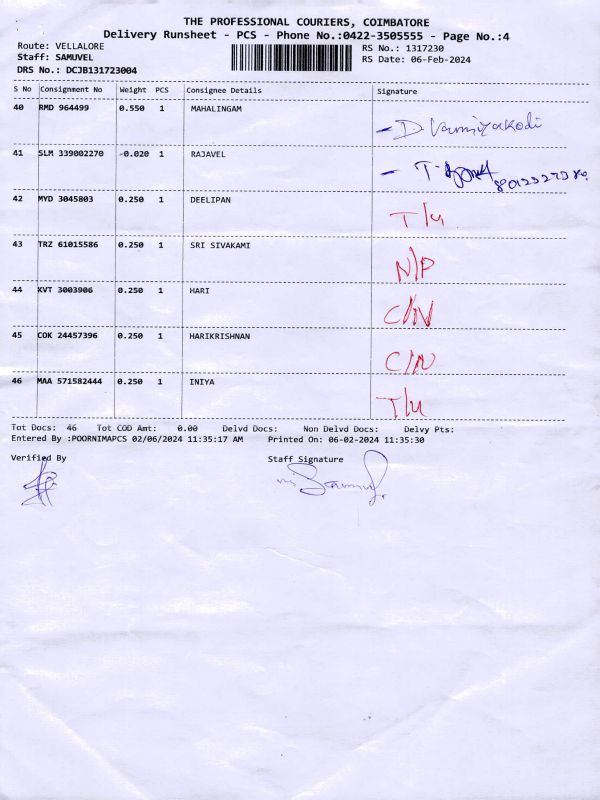 THE PROFESSIONAL COURIERS, COIMBATORE
Delivery Runsheet - PCS - Phone No.:0422-3505555 - Page No.:4
Route: VELLALORE
RS No.: 1317230
Staff: SAMUVEL
RS Date: 06-Feb-2024
DRS No.: DCJB131723004
S No Consignment No Weight PCS Consignee Details Signature
40 RMD 964499 0.550 1 MAHALINGAM
- D.
41 SLM 339002270 -0.020 1 RAJAVEL
- T.
42 MYD 3045803 0.250 1 DEELIPAN
T/U
43 TRZ 61015586 0.250 1 SRI SIVAKAMI
N/P
44 KVT 3003906 0.250 1 HARI
C/N
45 COK 24457396 0.250 1 HARIKRISHNAN
C/N
46 MAA 571582444 0.250 1 INIYA
T/U
Tot Docs: 46 Tot COD Amt: 0.00 Delvd Docs: Non Delvd Docs: Delvy Pts:
Entered By :POORNIMAPCS 02/06/2024 11:35:17 AM Printed On: 06-02-2024 11:35:30
Verified By Staff Signature